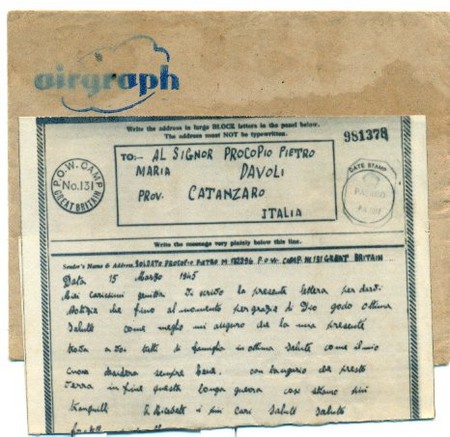 airgraph
Write the address in large BLOCK letters in the panel below.
The address must NOT be typewritten.
981378
TO:- AL SIGNOR PROCOPIO PIETRO
MARIA DAVOLI
PROV. CATANZARO
ITALIA
P.O.W. CAMP
No. 131
GREAT BRITAIN
DATE STAMP
Write the message very plainly below this line.
Sender's Name & Address SOLDATO PROCOPIO PIETRO M P.O.W. CAMP. N. 131 BRITAIN
Data 15 Marzo 1945
Miei carissimi genitori Vi scrivo la presente lettera per darvi
Notizia che fino al momento per grazia di Dio godo ottima
Salute come meglio mi auguro che la mia presente
trova a voi tutti di famiglia in ottima salute come il mio
cuore desidera sempre bene. con l'augurio che presto
in fine questa longa guerra così stiamo più
tranquilli i più cari saluti saluto